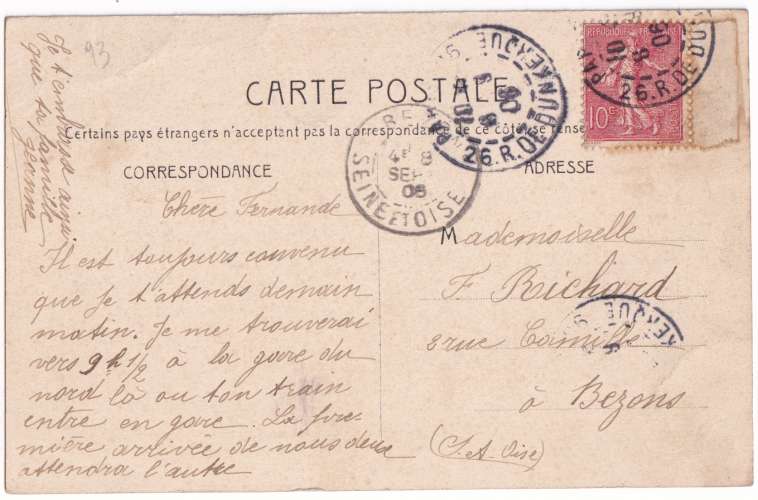 93
CARTE POSTALE
Certains pays étrangers n'acceptant pas la correspondance de ce côté se rense
CORRESPONDANCE
ADRESSE
Chère Fernande
Il est toujours convenu
que je t'attends demain
matin. Je me trouverai
vers 9h1/2 à la gare du
nord là ou ton train
entre en gare. La pre-
mière arrivée de nous deux
attendra l'autre
Je t'embrasse ainsi
que ta famille
Jeanne
Mademoiselle
F. Richard
3 rue Camille
à Bezons
(S. et Oise)
REPUBLIQUE FRANCAISE
10c
PAR
26.R. DE DUNKERQUE
26.R. DE DU
BE
8
SEPT
06
SEINE ET OISE
KERQUE